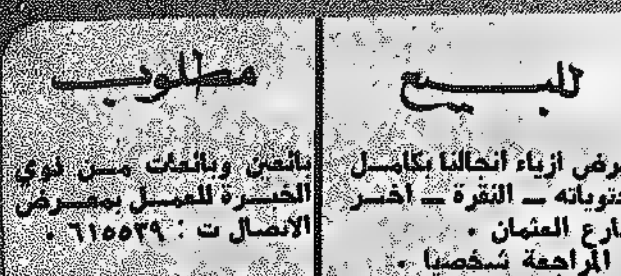 للبيع
رض أزياء انجالنا بكامل
حتوياته ــ النقرة ــ اخر
ارع العثمان •
المراجعة شخصيا •
مطلوب
بائعين وبائعات من ذوي
الخبرة للعمل بمعرض
الاتصال ت : ٦١٥٥٣٩ •